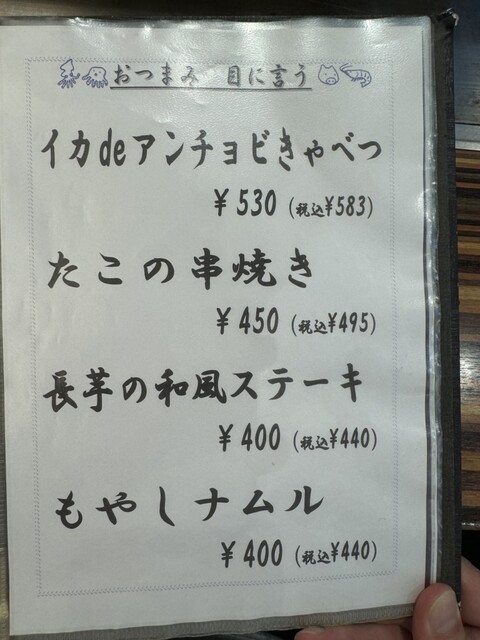 おつまみ 目に言う
イカdeアンチョビきゃべつ
¥530 (税込¥583)
たこの串焼き
¥450 (税込¥495)
長芋の和風ステーキ
¥400 (税込¥440)
もやしナムル
¥400 (税込¥440)